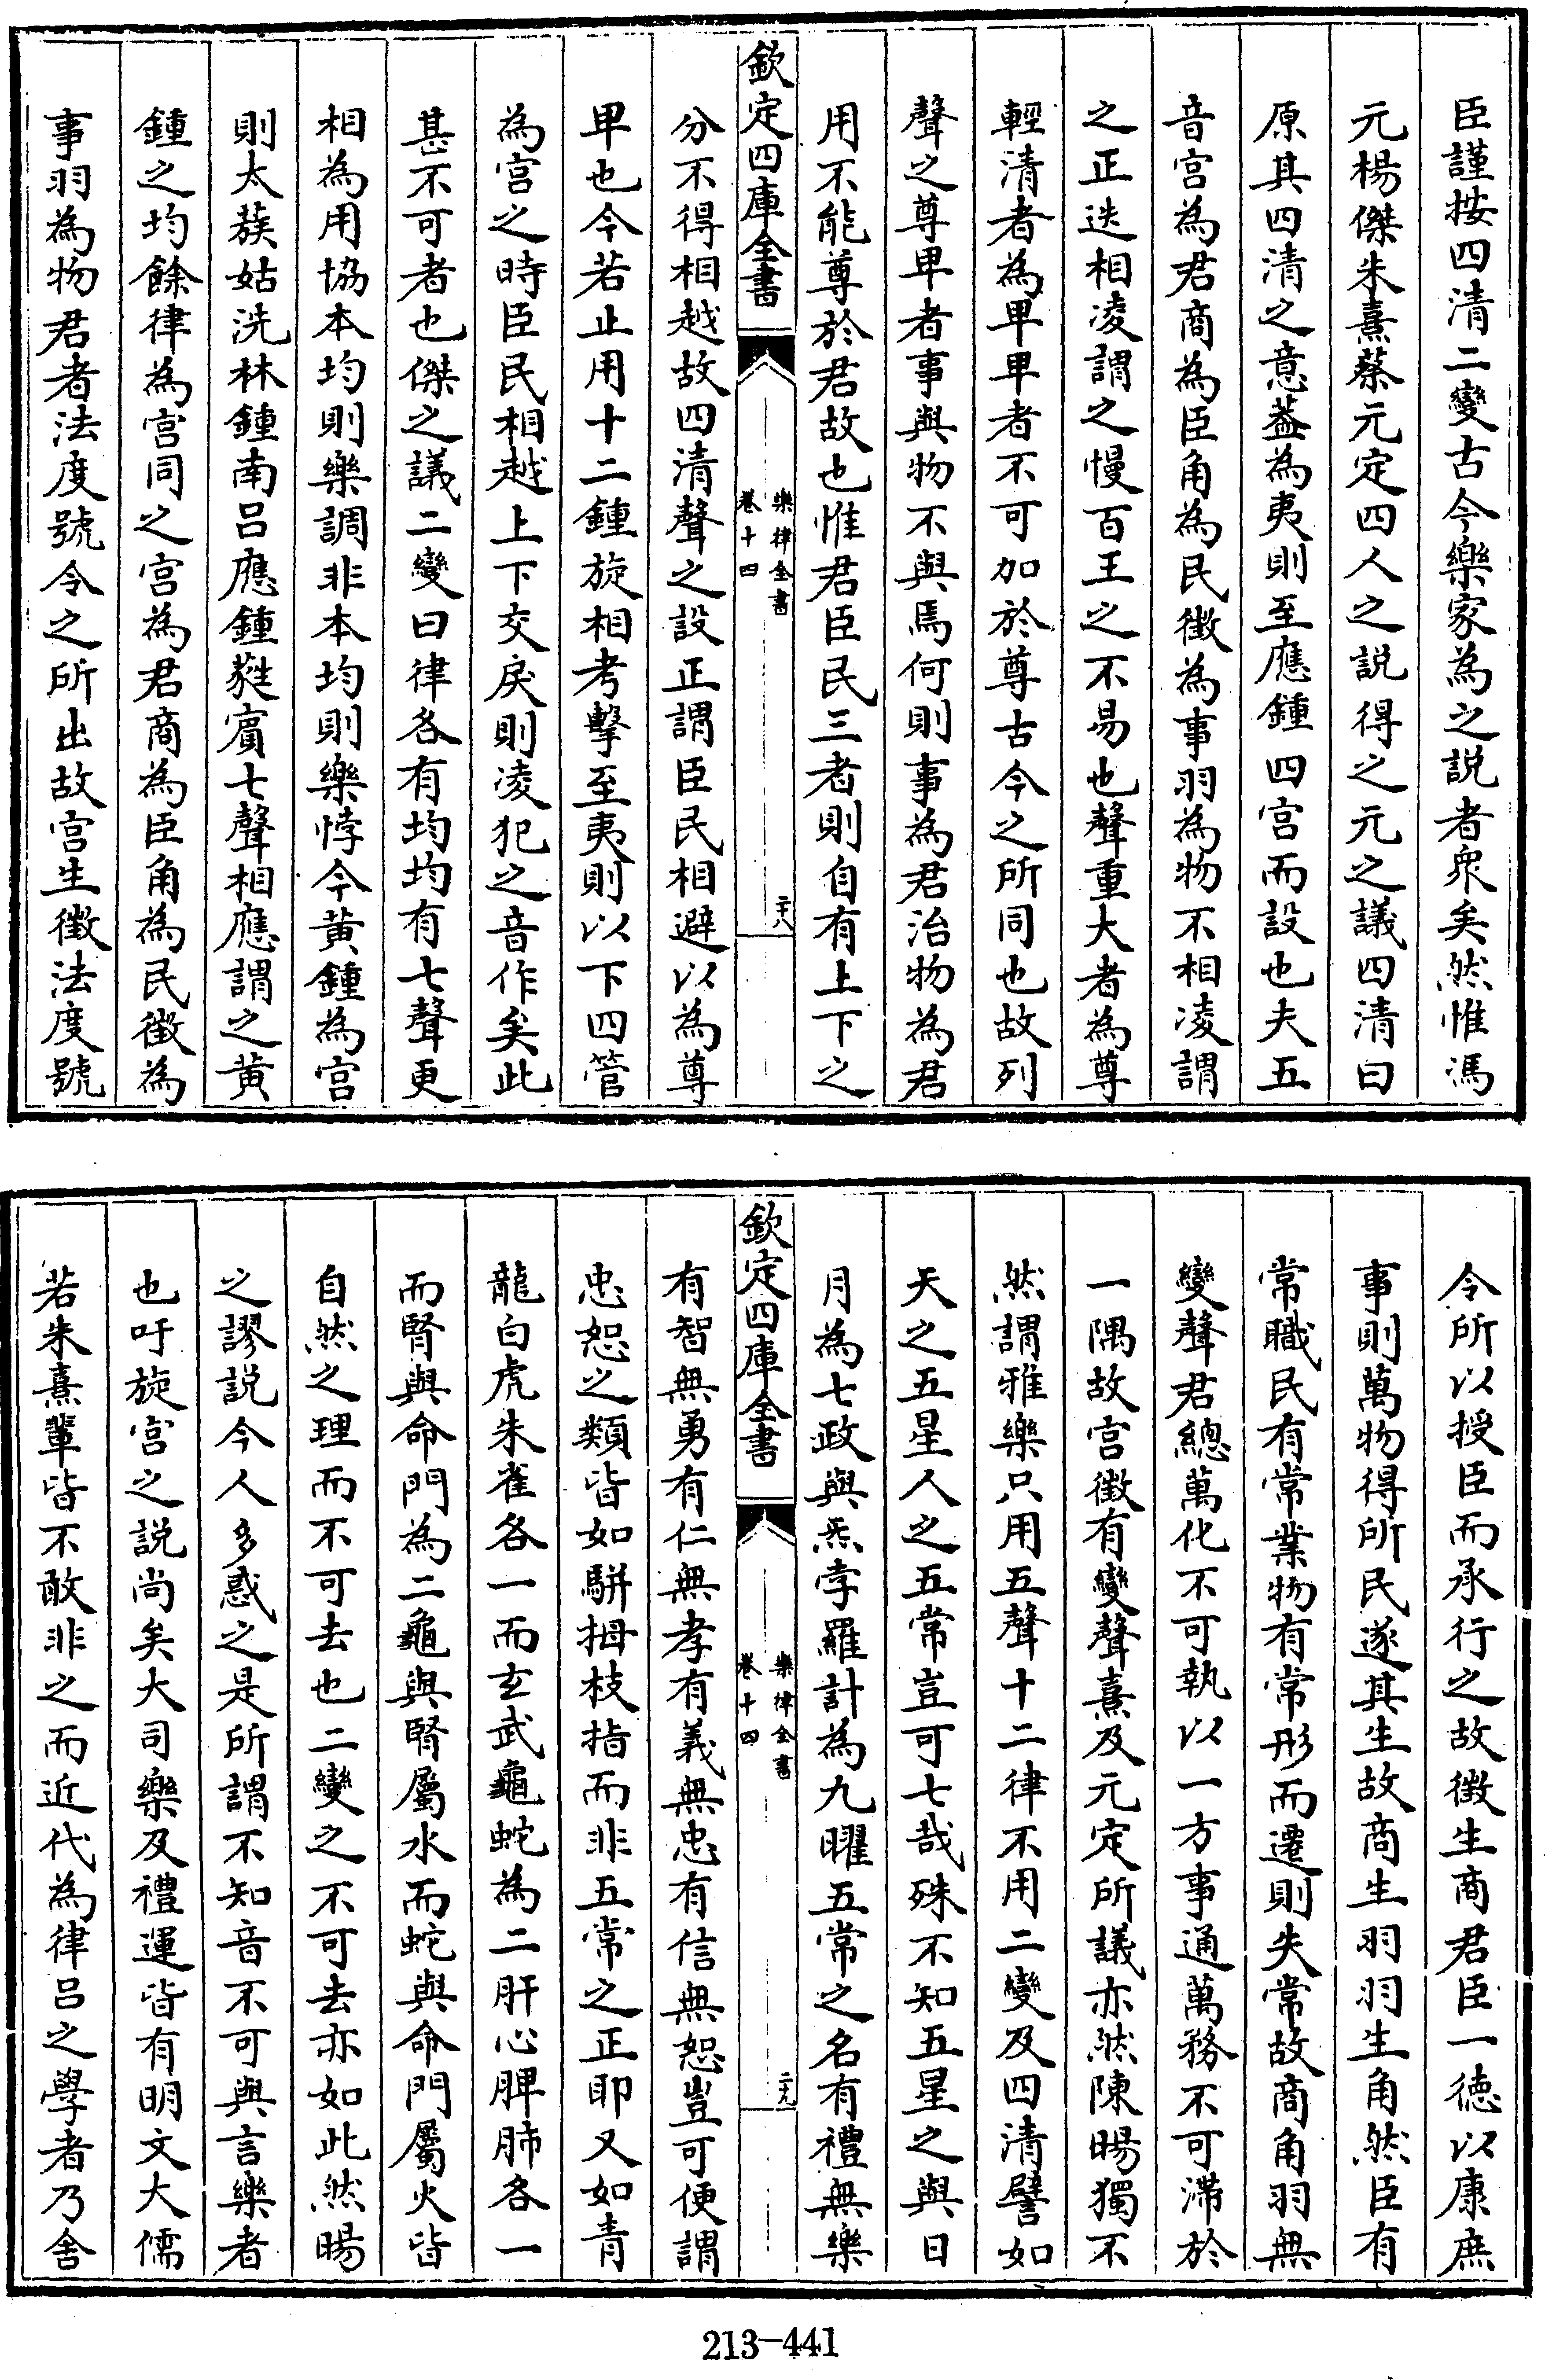 臣謹按四清二變古今樂家為之説者衆矣然惟馮
元楊傑朱熹蔡元定四人之説得之元之議四清曰
原其四清之意葢為夷則至應鍾四宫而設也夫五
音宫為君商為臣角為民徵為事羽為物不相凌謂
之正迭相凌謂之慢百王之不易也聲重大者為尊
輕清者為卑卑者不可加於尊古今之所同也故列
聲之尊卑者事與物不與焉何則事為君治物為君
用不能尊於君故也惟君臣民三者則自有上下之
欽定四庫全書
樂律全書
卷十四
二十八
分不得相越故四清聲之設正謂臣民相避以為尊
卑也今若止用十二鍾旋相考擊至夷則以下四管
為宫之時臣民相越上下交戾則凌犯之音作矣此
甚不可者也傑之議二變曰律各有均均有七聲更
相為用協本均則樂調非本均則樂悖今黄鍾為宫
則太蔟姑洗林鍾南吕應鍾蕤賓七聲相應謂之黄
鍾之均餘律為宫同之宫為君商為臣角為民徵為
事羽為物君者法度號令之所出故宫生徵法度號
令所以授臣而承行之故徵生商君臣一德以康庶
事則萬物得所民遂其生故商生羽羽生角然臣有
常職民有常業物有常形而遷則失常故商角羽無
變聲君總萬化不可執以一方事通萬務不可滯於
一隅故宫徵有變聲熹及元定所議亦然陳暘獨不
然謂雅樂只用五聲十二律不用二變及四清譬如
天之五星人之五常豈可七哉殊不知五星之與日
月為七政與炁孛羅計為九曜五常之名有禮無樂
欽定四庫全書
樂律全書
卷十四
二十九
有智無勇有仁無孝有義無忠有信無恕豈可便謂
忠恕之類皆如駢拇枝指而非五常之正耶又如青
龍白虎朱雀各一而玄武龜蛇為二肝心脾肺各一
而腎與命門為二龜與腎屬水而蛇與命門屬火皆
自然之理而不可去也二變之不可去亦如此然暘
之謬説今人多惑之是所謂不知音不可與言樂者
也吁旋宫之説尚矣大司樂及禮運皆有明文大儒
若朱熹輩皆不敢非之而近代為律吕之學者乃舍
213-441